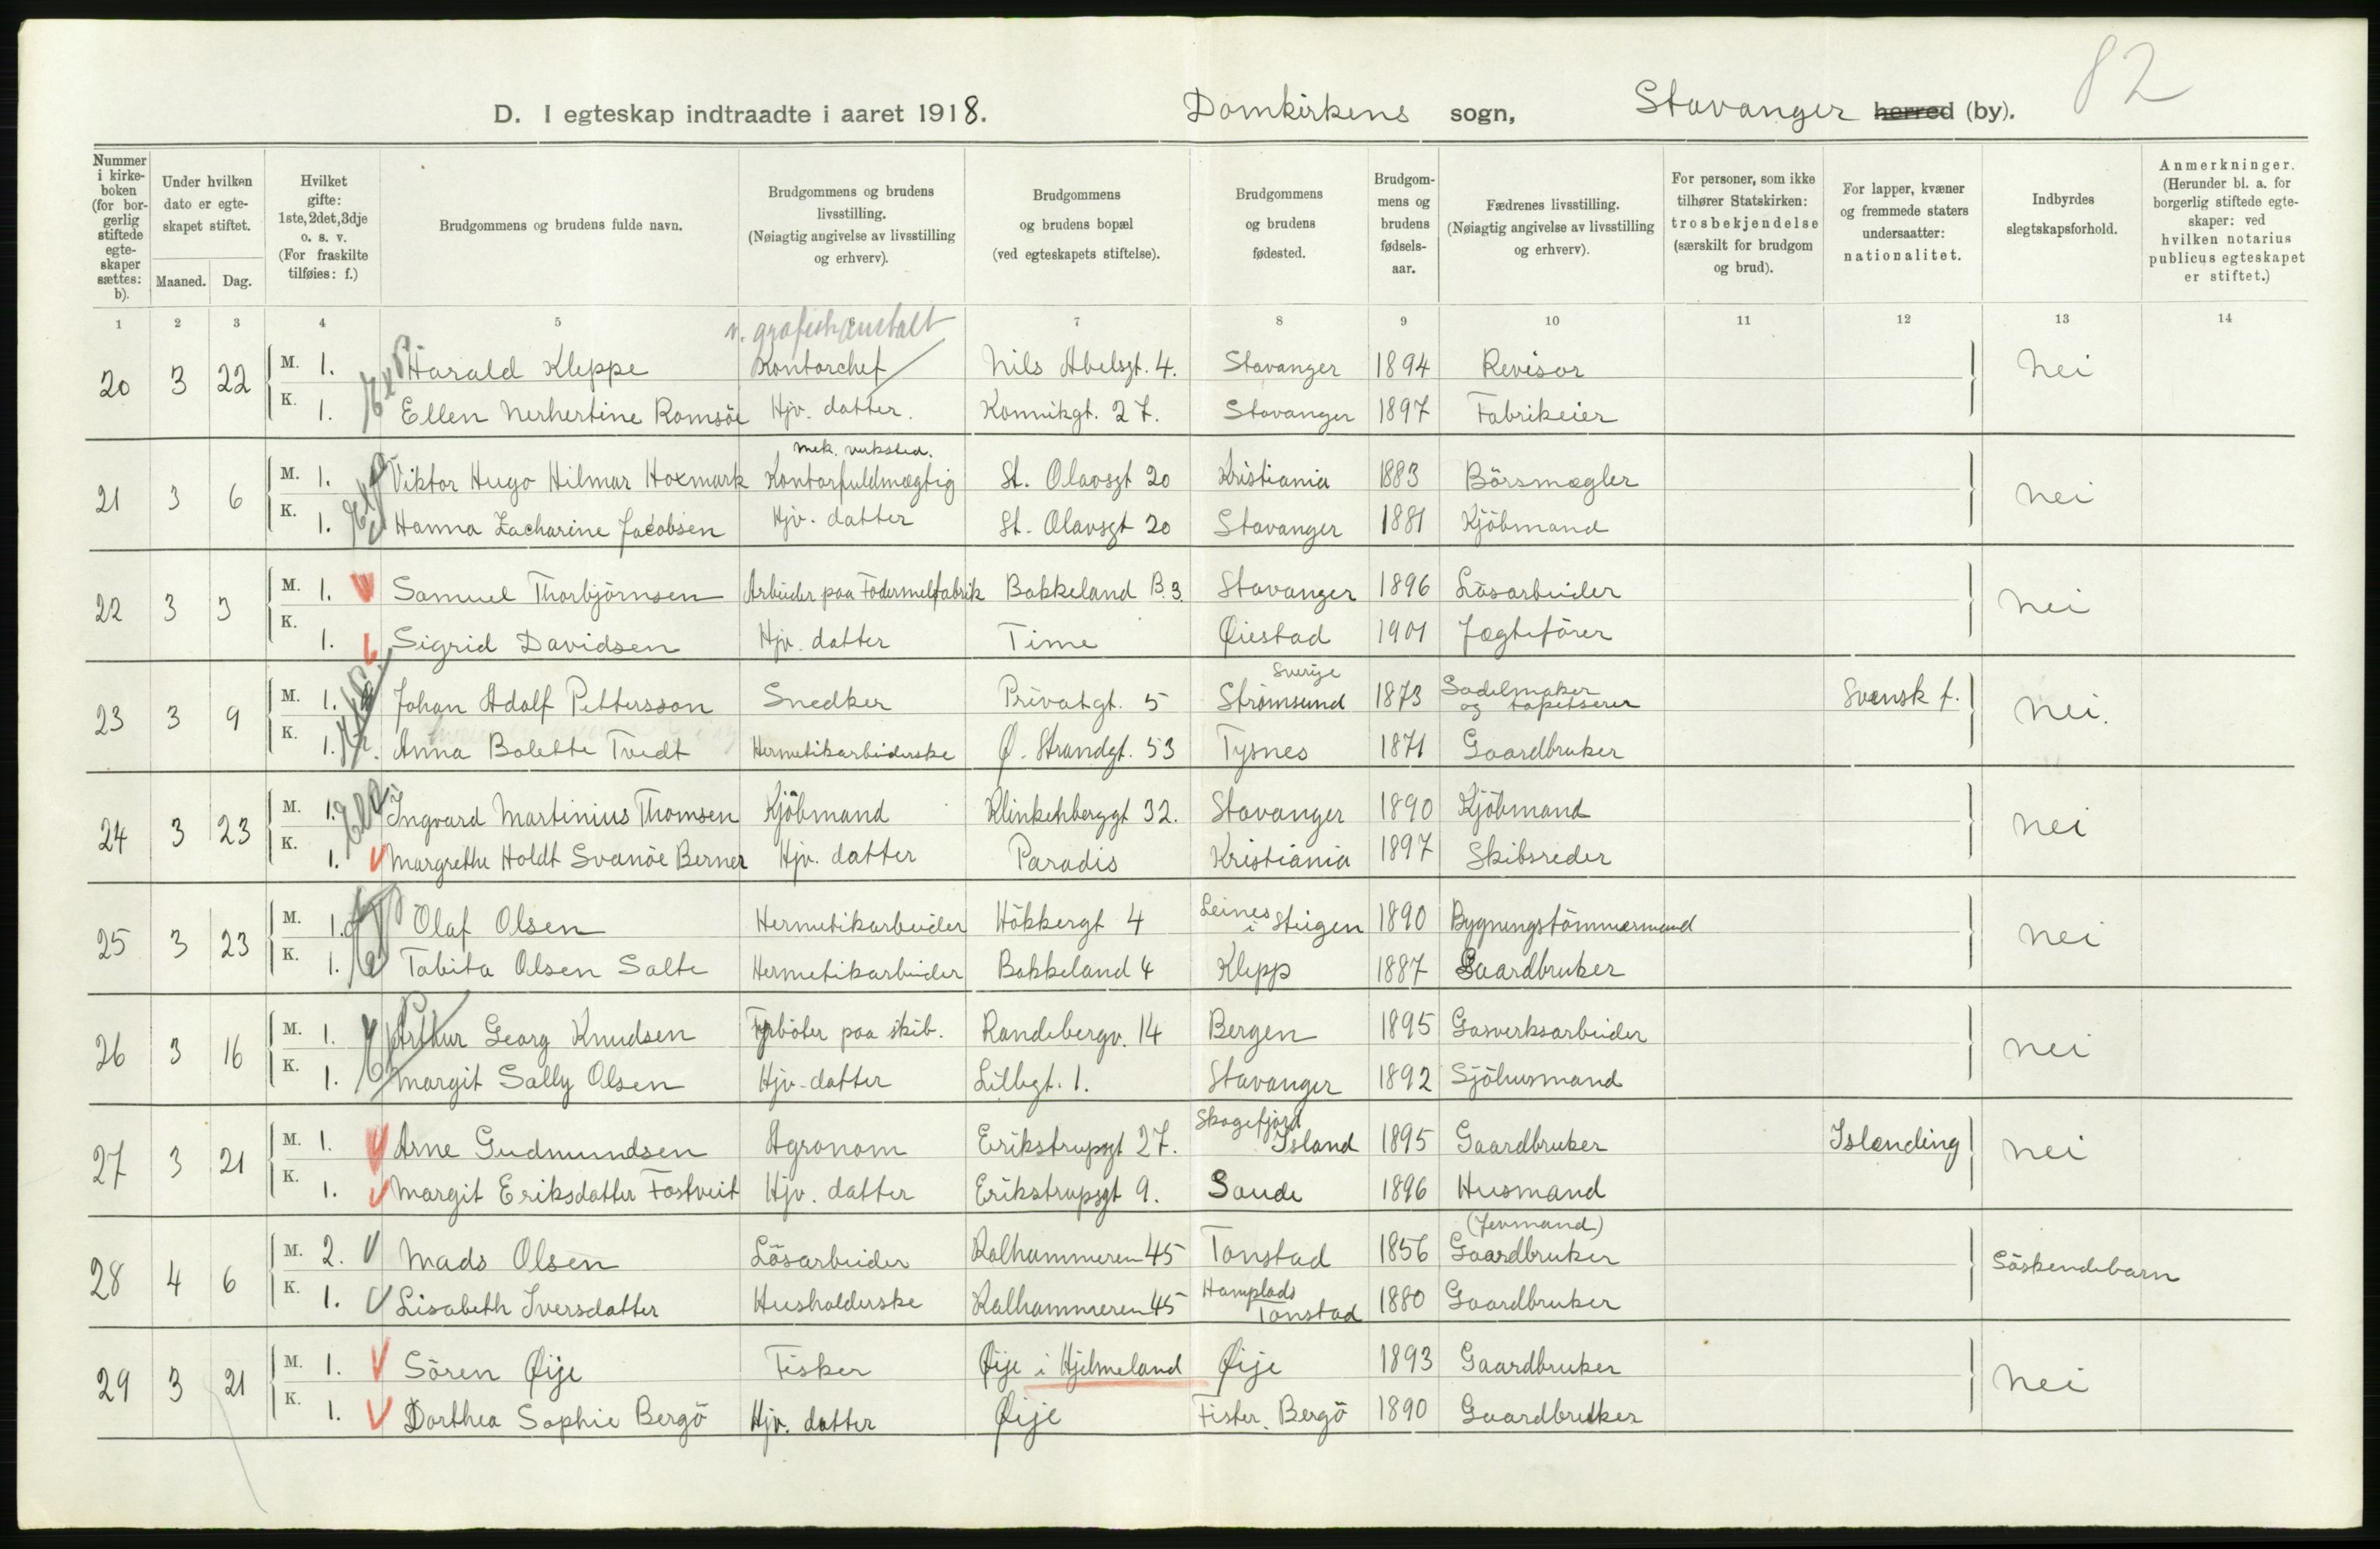 82
D. I egteskap indtraadte i aaret 1918. Domkirkens sogn, Stavanger herred (by).
Nummer i kirke- boken (for bor- gerlig stiftede egte- skaper sættes: b).
Under hvilken dato er egte- skapet stiftet.
Maaned. Dag.
Hvilket gifte: 1ste, 2det, 3dje o. s. v. (For fraskilte tilføies: f.)
Brudgommens og brudens fulde navn.
Brudgommens og brudens livsstilling. (Nøiagtig angivelse av livsstilling og erhverv).
Brudgommens og brudens bopæl (ved egteskapets stiftelse).
Brudgommens og brudens fødested.
Brudgom- mens og brudens fødsels- aar.
Fædrenes livsstilling. (Nøiagtig angivelse av livsstilling og erhverv).
For personer, som ikke tilhører Statskirken: trosbekjendelse (særskilt for brudgom og brud).
For lapper, kvæner og fremmede staters undersaatter: nationalitet.
Indbyrdes slegtskapsforhold.
Anmerkninger. (Herunder bl. a. for borgerlig stiftede egte- skaper: ved hvilken notarius publicus egteskapet er stiftet.)
1 2 3 4 5 7 8 9 10 11 12 13 14
20 3 22 M. 1. Harald Kleppe Kontorchef Nils Abelsgt. 4. Stavanger 1894 Revisor Nei
K. 1. Ellen Nerhertine Romsöe Hjv. datter. Konnikgt. 27. Stavanger 1897 Fabrikeier
mek. verksted.
21 3 6 M. 1. Viktor Hugo Hilmar Hoxmark Kontorfuldmægtig St. Olavsgt 20 Kristiania 1883 Börsmægler Nei
K. 1. Hanna Zacharine Jacobsen Hjv. datter St. Olavsgt 20 Stavanger 1881 Kjöbmand
22 3 3 M. 1. Samuel Thorbjörnsen Arbeider paa Fodermelfabrik Bakkeland B. 3. Stavanger 1896 Lösarbeider Nei
K. 1. Sigrid Davidsen Hjv. datter Time Øiestad 1901 Jægtefører
Sverige
23 3 9 M. 1. Johan Adolf Pettersson Snedker Privatgt. 5 Strömsund 1873 Sadelmaker og tapetserer Svensk f. Nei.
K. 1. Anna Bolette Tvedt Hermetikarbeiderske Ø. Strandgt. 53 Tysnes 1871 Gaardbruker
24 3 23 M. 1. Ingvard Martinius Thomsen Kjöbmand Klinkenberggt 32. Stavanger 1890 Kjöbmand Nei
K. 1. Margrethe Holdt Svanöe Berner Hjv. datter Paradis Kristiania 1897 Skibsreder
25 3 23 M. 1. Olaf Olsen Hermetikarbeider Hökkergt 4 Leines i Steigen 1890 Bygningstömmermand Nei
K. 1. Tabita Olsen Salte Hermetikarbeider Bakkeland 4 Klepp 1887 Gaardbruker
26 3 16 M. 1. Arthur Georg Knudsen Fyrböter paa skib. Randebergv. 14 Bergen 1895 Gasverksarbeider Nei
K. 1. Margit Sally Olsen Hjv. datter Lillegt. 1. Stavanger 1892 Sjöhusmand
27 3 21 M. 1. Arne Gudmundsen Agronom Erikstrupsgt 27. Skagefjord Island 1895 Gaardbruker Islending Nei
K. 1. Margit Eriksdatter Fostveit Hjv. datter Erikstrupsgt 9. Saude 1896 Husmand
28 4 6 M. 2. Mads Olsen Lösarbeider Kalhammeren 45 Tonstad 1856 Gaardbruker Söskendebarn
K. 1. Lisabeth Iversdatter Husholderske Kalhammeren 45 Tonstad 1880 Gaardbruker
29 3 21 M. 1. Sören Øije Fisker Øije i Hjelmeland Øije 1893 Gaardbruker Nei
K. 1. Dorthea Sophie Bergö Hjv. datter Øije Fister. Bergö 1890 Gaardbruker